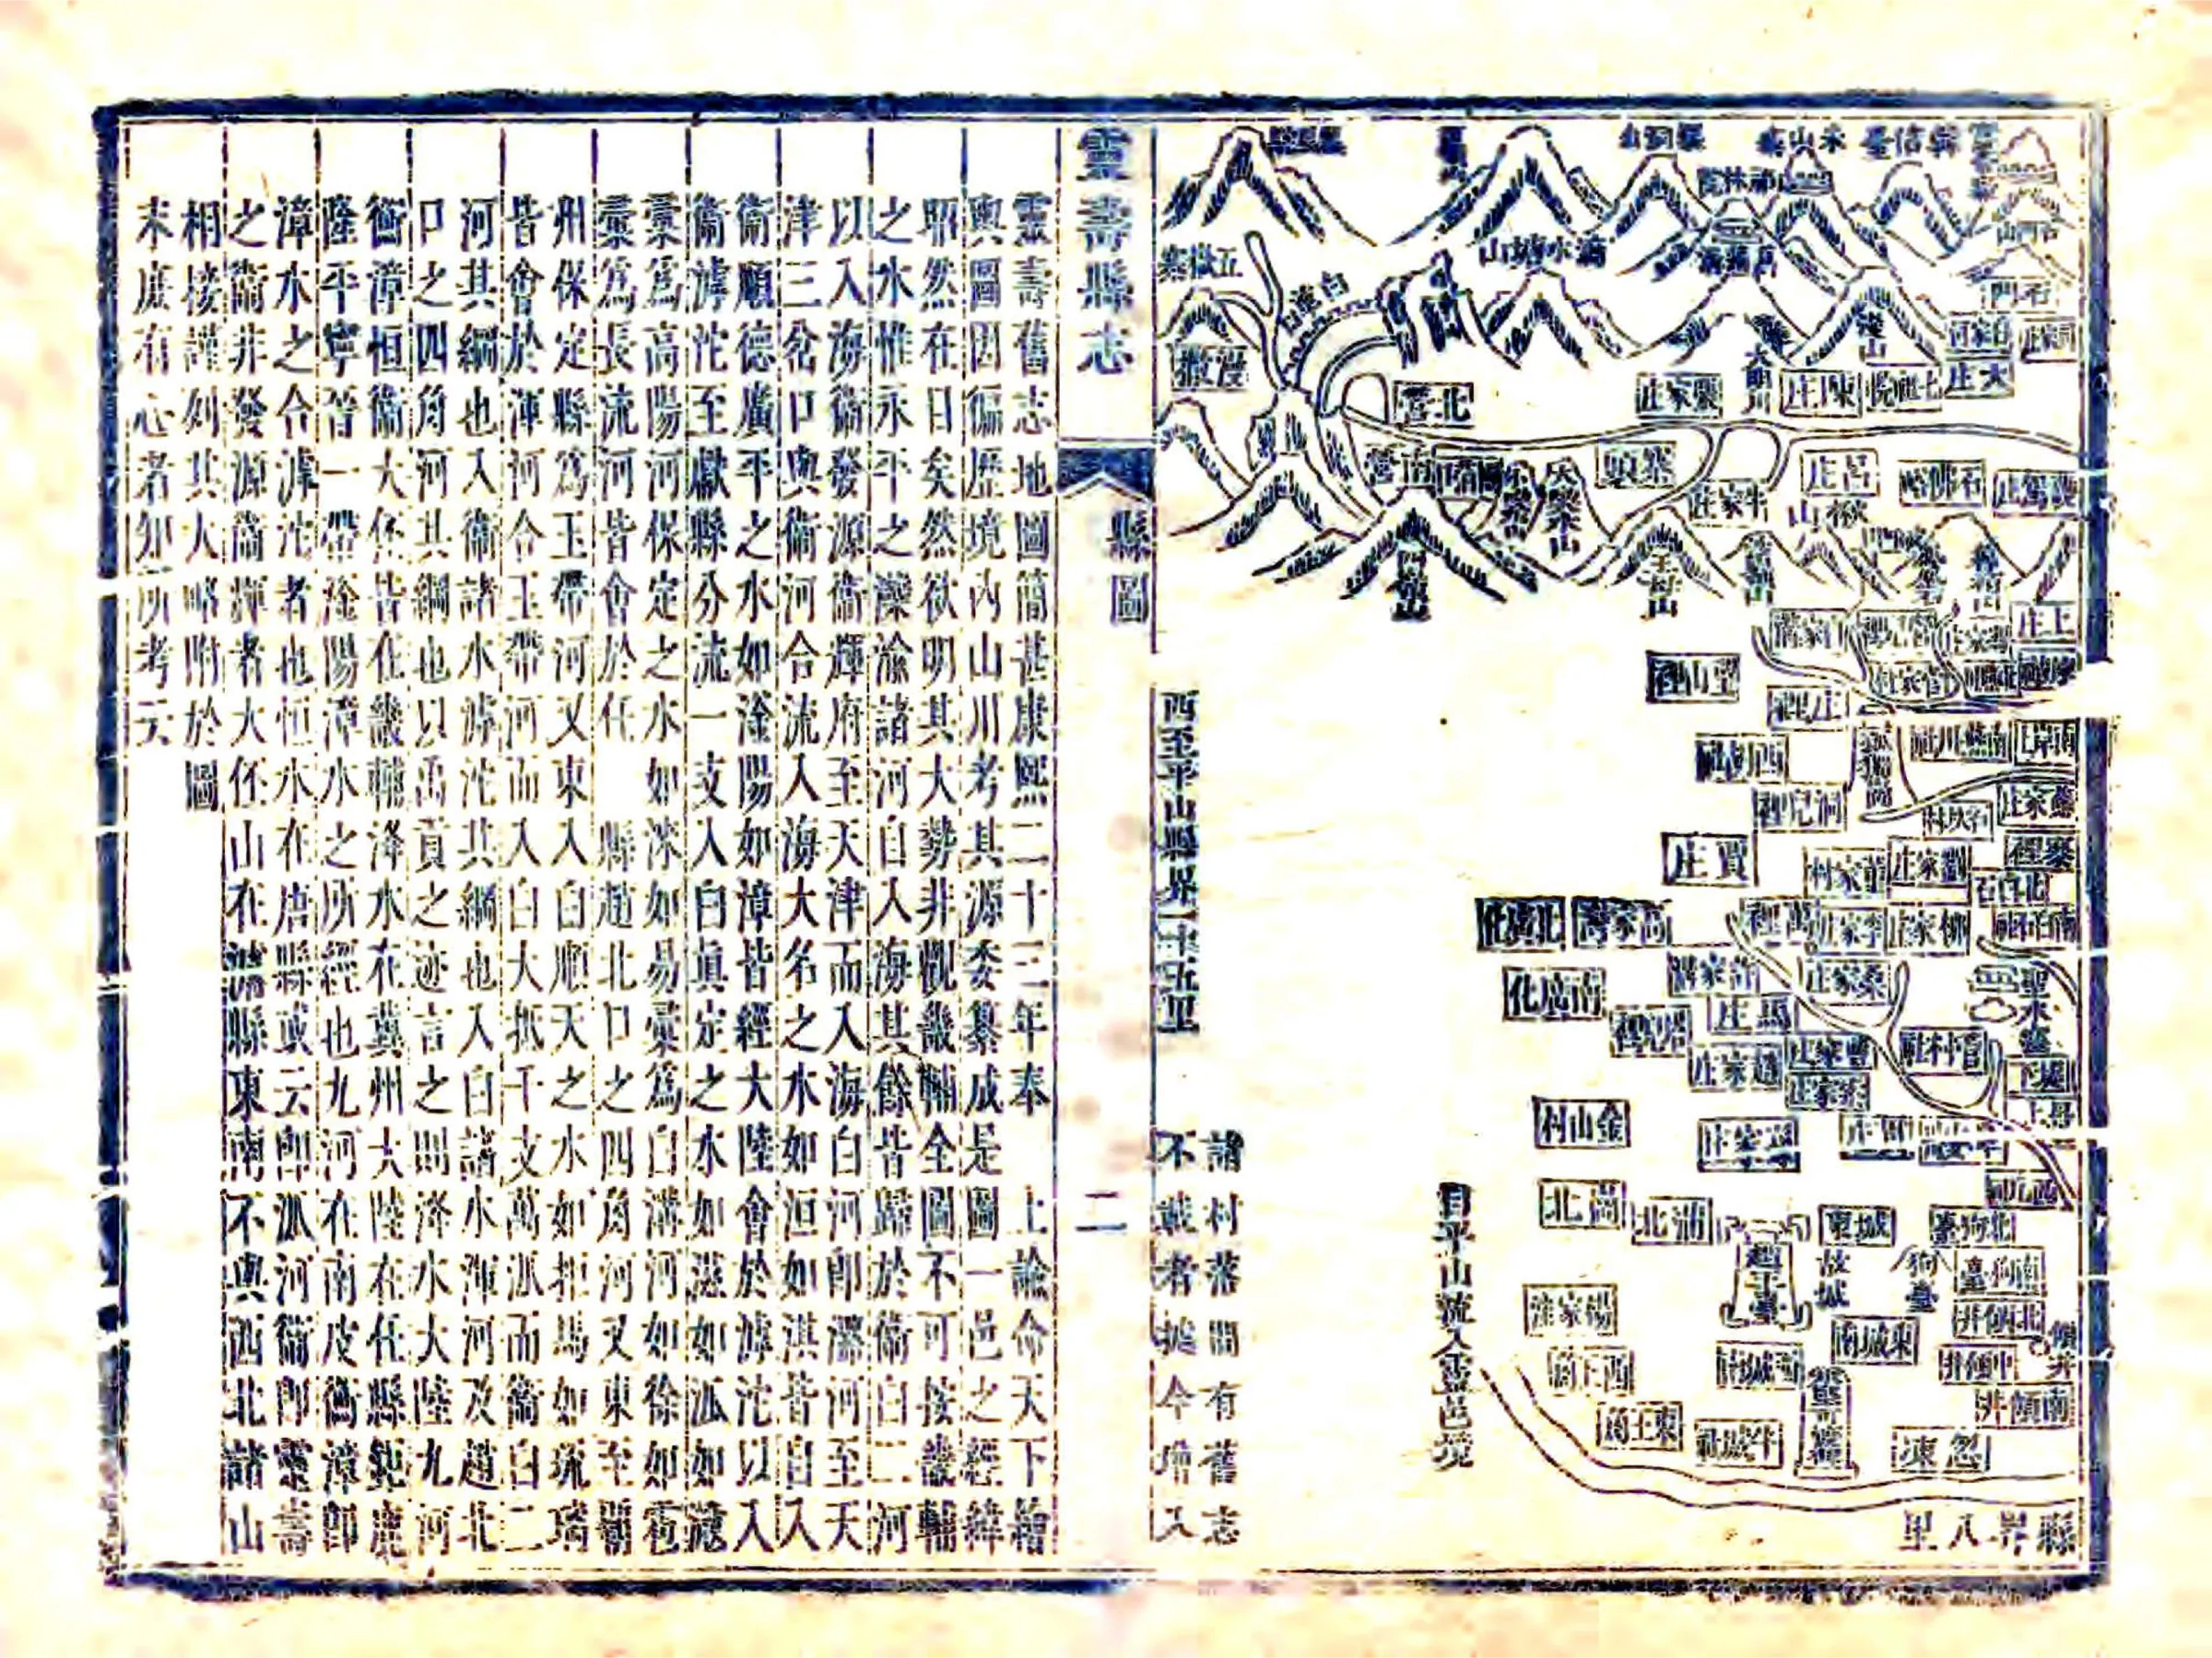 縣界八里
石門
漫山
大明川
大庄
陳庄
北營
五嶽寨
白草口
漫撒
滴水塘山
南營
寨頭
牛家庄
呂庄
石佛峪
楸山
天梁山
上庄
望山裡
庄裡
洞兒裡
劉家庄
賈庄
寨裡
北白石
高家灣
萬裡
李家庄
柳家庄
北廣化
南廣化
許家溝
秦家庄
聖水盆
馬庄
曹家庄
管村社
趙家庄
金山村
北蒲
城東
故城
狗臺
北狗臺
南狗臺
趙王臺
楊家洼
東城南
西城南
北傾井
中傾井
南傾井
傾井
東王角
牛城社
忽凍
自平山流入靈邑境
諸村落間有舊志
不載者據今增入
西至平山縣界二十五里
靈壽縣志
縣圖
二
靈壽舊志地圖簡甚康熙二十三年奉 上諭命天下繪
輿圖因徧歷境內山川考其源委纂成是圖一邑之經緯
昭然在目矣然欲明其大勢非觀畿輔全圖不可按畿輔
之水惟永平之灤渝諸河自入海其餘皆歸於衞白二河
以入海衞發源衞輝府至天津而入海白河即潞河至天
津三岔口與衞河合流入海大名之水如洹如淇皆自入
衞順德廣平之水如滏陽如漳皆經大陸會於滹沱以入
衞滹沱至獻縣分流一支入白真定之水如滋如泒如滱
彚爲高陽河保定之水如淶如易彚爲白溝河如徐如雹
彚爲長流河皆會於任 縣趙北口之四角河又東至霸
州保定縣爲玉帶河又東入白順天之水如拒馬如琉璃
皆會於渾河合玉帶河而入白大抵千支萬派而衞白二
河其綱也入衞諸水滹沱其綱也入白諸水渾河及趙北
口之四角河其綱也以禹貢之迹言之則洚水大陸九河
衡漳恒衞大伾皆在畿輔洚水在冀州大陸在任縣鉅鹿
隆平寧晉一帶滏陽漳水之所經也九河在南皮衡漳即
漳水之合滹沱者也恒水在唐縣或云即泒河衞即靈壽
之衞非發源衞輝者大伾山在濬縣東南不與西北諸山
相接謹列其大略附於圖
末庶有心者知所考云